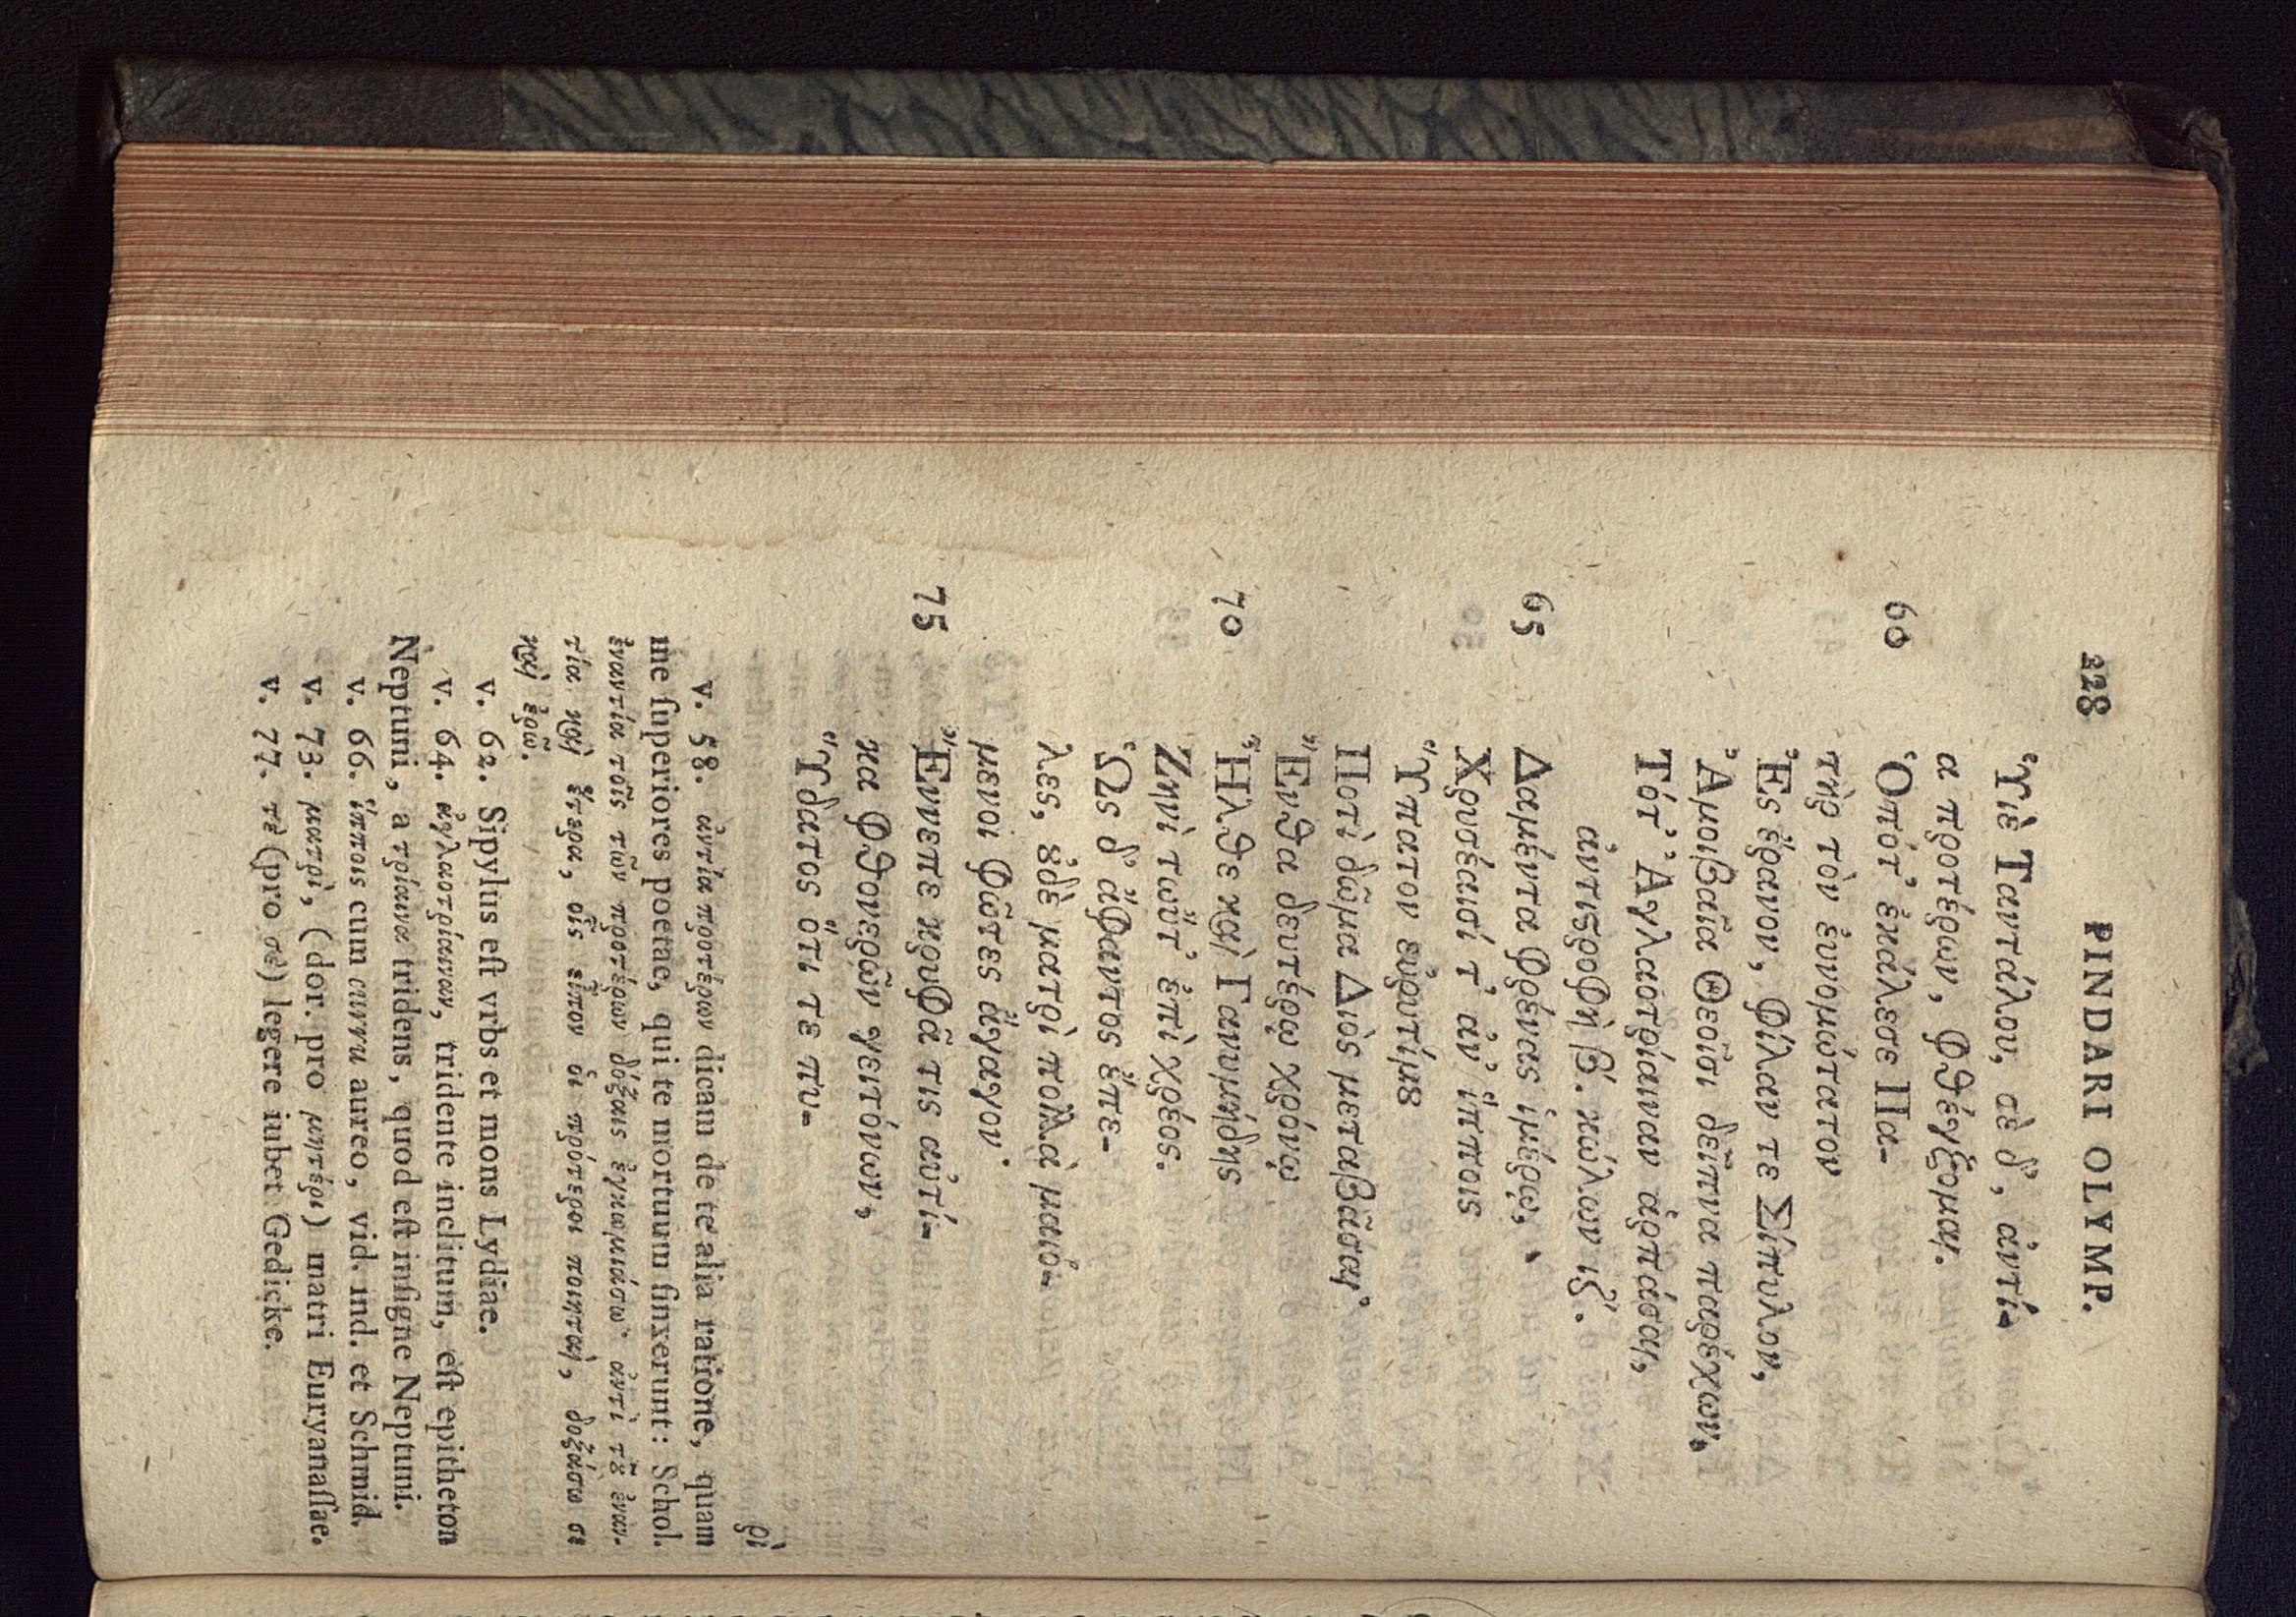 228 PINDARI OLYMP.
Ὑιὲ Ταντάλου, σὲ δ', ἀντί-
α προτέρων, φθέγξομαι.
60 Ὁπότ' ἐκάλεσε Πα-
τὴρ τὸν ἐυνομώτατον
Ἐς ἔρανον, φίλαν τε Σίπυλον,
Ἀμοιβαῖα Θεοῖσι δεῖπνα παρέχων,
Τότ' Ἀγλαοτρίαιναν ἁρπάσαι,
ἀντιϛροφὴ β'. κώλων ιζ'.
65 Δαμέντα φρένας ἱμέρῳ,
Χρυσέαισί τ' ἀν' ἵπποις
Ὕπατον εὐρυτίμȣ
Ποτὶ δῶμα Διὸς μεταβᾶσαι·
Ἔνθα δευτέρῳ χρόνῳ
70 Ἦλθε καὶ Γανυμήδης
Ζηνὶ τωΰτ' ἐπὶ χρέος.
Ὡς δ' ἄφαντος ἔπε-
λες, ȣ̓δὲ ματρὶ πολλὰ μαιό-
μενοι φῶτες ἄγαγον·
75 Ἔννεπε κρυφᾶ τις αὐτί-
κα φθονερῶν γειτόνων,
Ὕδατος ὅτι τε πυ-
ρὶ
v. 58. ἀντία προτέρων dicam de te alia ratione, quam
me ſuperiores poetae, qui te mortuum finxerunt: Schol.
ἐναντία τοῖς τῶν προτέρων δόξαις ἐγκωμιάσω· ἀντὶ τȣ͂ ἐναν-
τία καὶ ἕτερα, οἷς εἶπον ὁι πρότεροι ποιηταὶ, δοξάσω σε
καὶ ἐρῶ.
v. 62. Sipylus eſt vrbs et mons Lydiae.
v. 64. ἀγλαοτρίαιναν, tridente inclitum, eſt epitheton
Neptuni, a τρίαινα tridens, quod eſt inſigne Neptuni.
v. 66. ἵπποις cum curru aureo, vid. ind. et Schmid.
v. 73. ματρὶ, (dor. pro μητέρι) matri Euryanaſſae.
v. 77. τὲ (pro σὲ) legere iubet Gedicke.